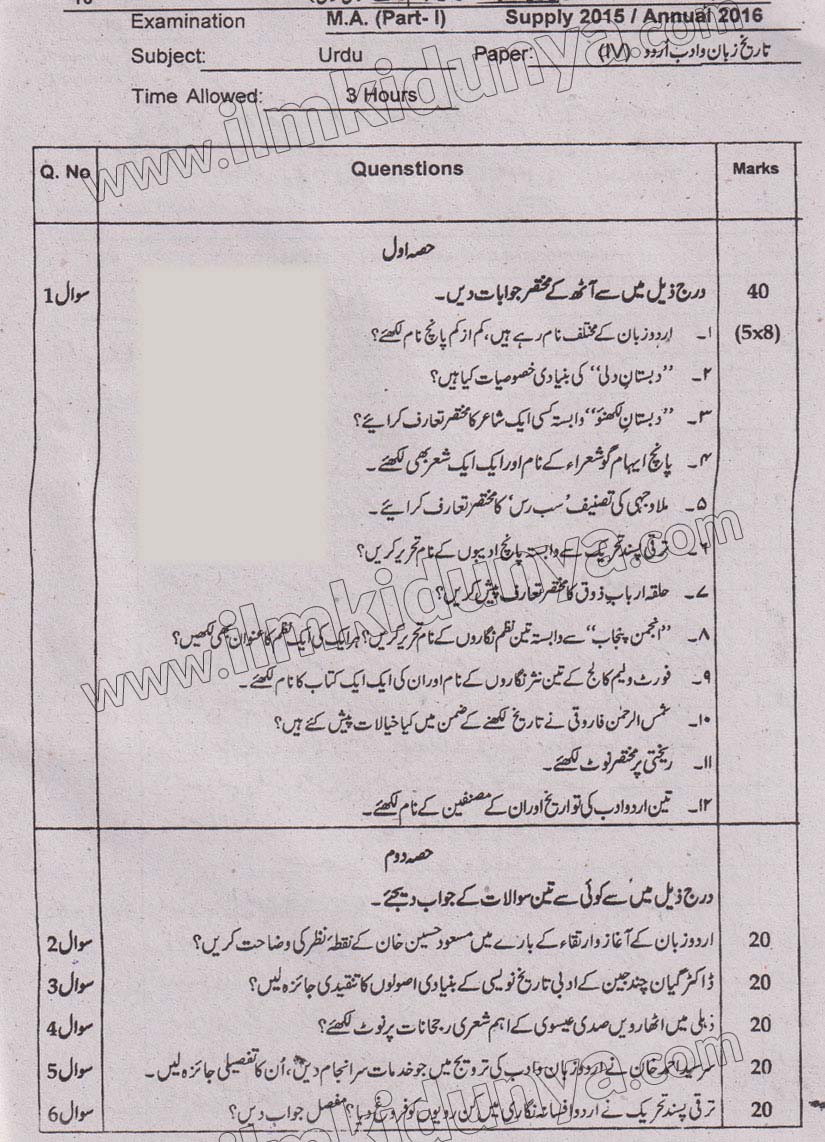 Examination M.A. (Part- I) Supply 2015 / Annual 2016
Subject: Urdu Paper: (IV) تاریخ زبان و ادب اُردو
Time Allowed: 3 Hours
Q. No Quenstions Marks
حصہ اول
سوال 1 درج ذیل میں سے آٹھ کے مختصر جوابات دیں۔ 40
۱۔ اردو زبان کے مختلف نام رہے ہیں، کم از کم پانچ نام لکھئے؟ (5x8)
۲۔ ”دبستانِ دلی“ کی بنیادی خصوصیات کیا ہیں؟
۳۔ ”دبستانِ لکھنؤ“ وابستہ کسی ایک شاعر کا مختصر تعارف کرائیے؟
۴۔ پانچ ایہام گو شعراء کے نام اور ایک ایک شعر بھی لکھئے۔
۵۔ ملا وجہی کی تصنیف ’سب رس‘ کا مختصر تعارف کرائیے۔
۶۔ ترقی پسند تحریک سے وابستہ پانچ ادیبوں کے نام تحریر کریں؟
۷۔ حلقہ اربابِ ذوق کا مختصر تعارف پیش کریں؟
۸۔ ”انجمن پنجاب“ سے وابستہ تین نظم نگاروں کے نام تحریر کریں؟ ہر ایک کی ایک نظم کا عنوان بھی لکھیں؟
۹۔ فورٹ ولیم کالج کے تین نثر نگاروں کے نام اور ان کی ایک ایک کتاب کا نام لکھئے۔
۱۰۔ شمس الرحمٰن فاروقی نے تاریخ لکھنے کے ضمن میں کیا خیالات پیش کئے ہیں؟
۱۱۔ ریختی پر مختصر نوٹ لکھئے۔
۱۲۔ تین اردو ادب کی تواریخ اور ان کے مصنفین کے نام لکھئے۔
حصہ دوم
درج ذیل میں سے کوئی سے تین سوالات کے جواب دیجئے۔
سوال 2 اردو زبان کے آغاز و ارتقاء کے بارے میں مسعود حسین خان کے نقطۂ نظر کی وضاحت کریں؟ 20
سوال 3 ڈاکٹر گیان چند جین کے ادبی تاریخ نویسی کے بنیادی اصولوں کا تنقیدی جائزہ لیں؟ 20
سوال 4 دہلی میں اٹھارویں صدی عیسوی کے اہم شعری رجحانات پر نوٹ لکھئے؟ 20
سوال 5 سرسید احمد خان نے اردو زبان و ادب کی ترویج میں جو خدمات سرانجام دیں، اُن کا تفصیلی جائزہ لیں۔ 20
سوال 6 ترقی پسند تحریک نے اردو افسانہ نگاری میں کن رویوں کو فروغ دیا؟ مفصل جواب دیں؟ 20
www.ilmkidunya.com
www.ilmkidunya.com
www.ilmkidunya.com